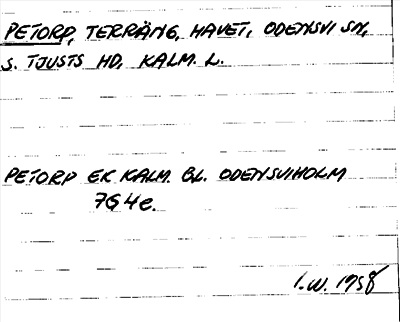 PETORP, TERRÄNG, HAVET, ODENSVI SN,
S. TJUSTS HD, KALM. L.
PETORP EK KALM. BL. ODENSVIHOLM
7G4e.
1958